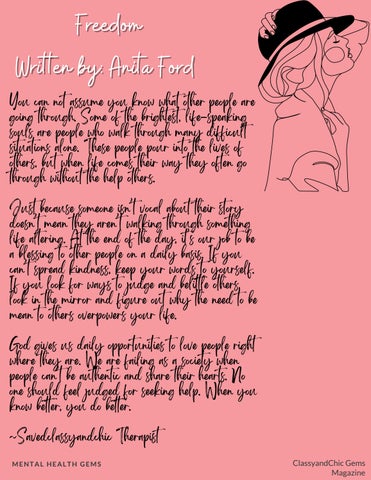 Freedom
Written by: Anita Ford
You can not assume you know what other people are
going through. Some of the brightest, life-speaking
souls are people who walk through many difficult
situations alone. These people pour into the lives of
others, but when life comes their way they often go
through without the help others.
Just because someone isn't vocal about their story
doesn't mean they aren't walking through something
life altering. At the end of the day, it's our job to be
a blessing to other people on a daily basis. If you
can't spread kindness, keep your words to yourself.
If you look for ways to judge and belittle others,
look in the mirror and figure out why the need to be
mean to others overpowers your life.
God gives us daily opportunities to love people right
where they are. We are failing as a society when
people can't be authentic and share their hearts. No
one should feel judged for seeking help. When you
know better, you do better.
~Savedclassyandchic Therapist
MENTAL HEALTH GEMS
ClassyandChic Gems
Magazine